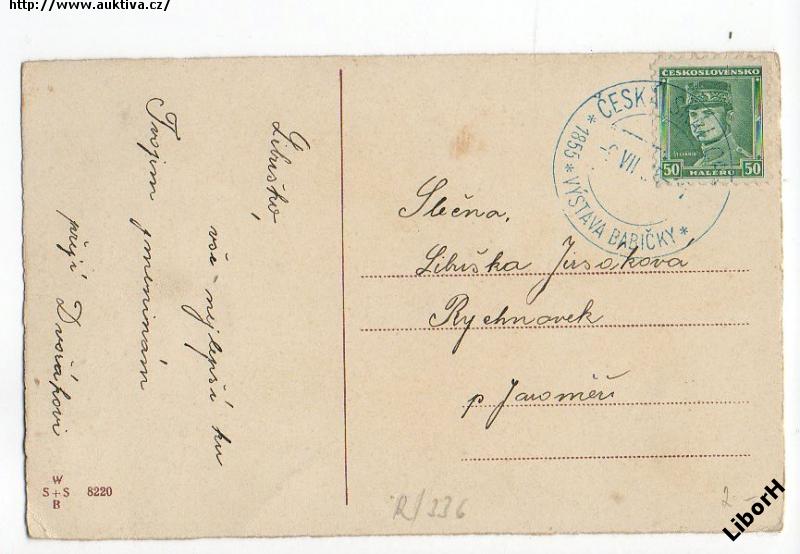 http://www.auktiva.cz/
Libuško,
vše nejlepší ku
Tvojim jmeninám
přejí Dvořákovi
W
S+S 8220
B
ČESKÁ
* 1855 * VÝSTAVA BABIČKY *
VII
ČESKOSLOVENSKO
50 HALÉŘŮ 50
Slečna,
Libuška Jirsáková
Rychnovek
p Jaroměři
R/336
LiborH